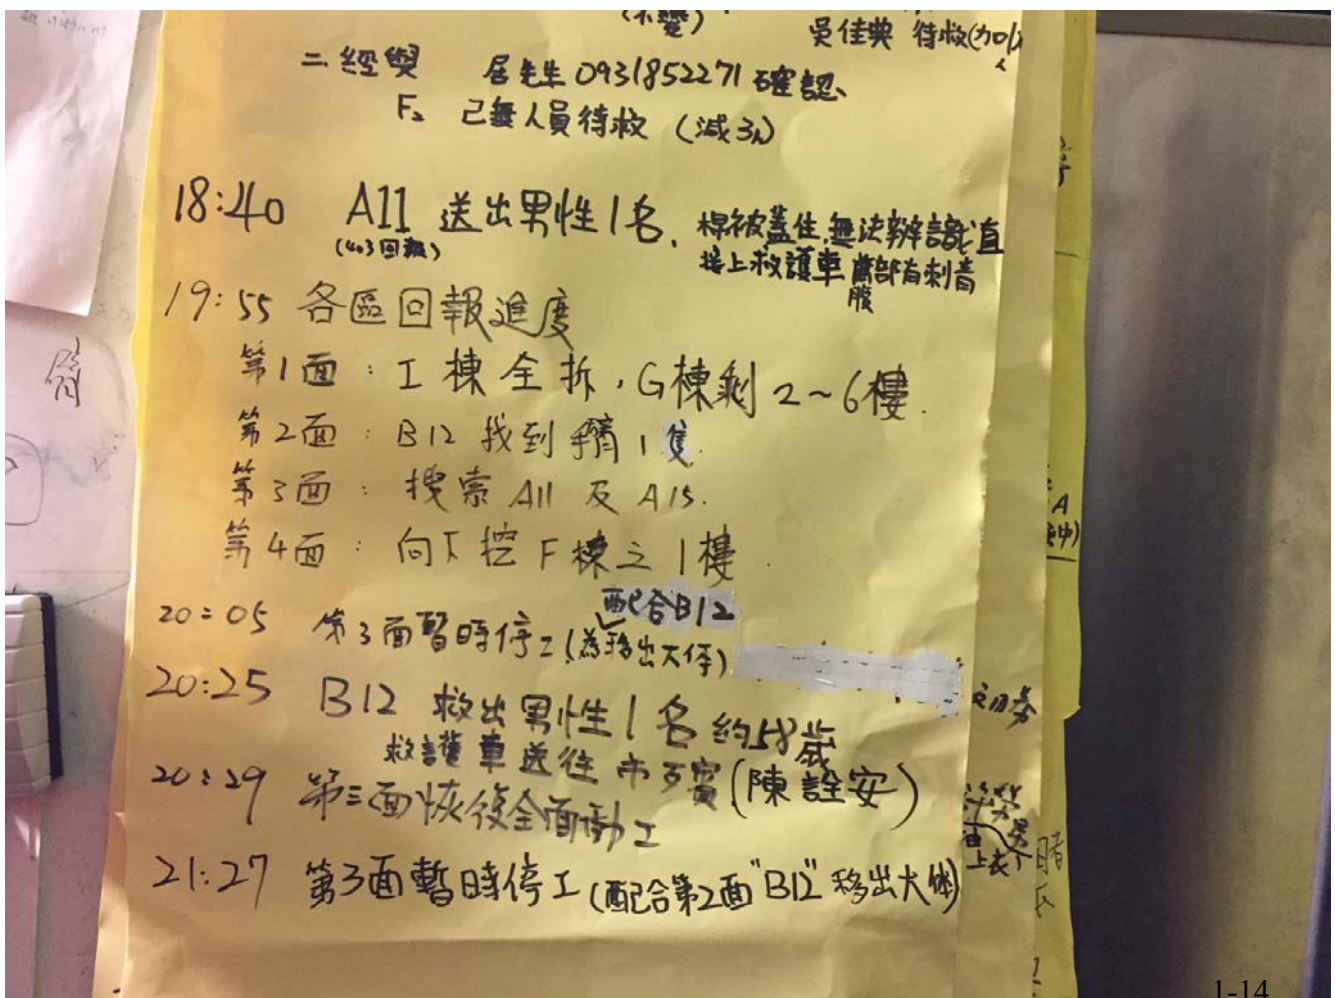 (不變)
吳佳典 待救(加1人)
二、經與 居先生0931852271確認、
F₂ 已無人員待救 (減3人)
18:40 A11 送出男性1名、棉被蓋住,無法辨識直
(403回報) 接上救護車 有刺青
腹
19:55 各區回報進度
第1面:I棟全拆,G棟剩2~6樓.
第2面:B12找到手臂1隻
第3面:搜索A11及A15.
第4面:向下挖F棟之1樓
配合B12
20:05 第3面暫時停工(為移出大体)
20:25 B12 救出男性1名約58歲
救護車送往市立殯(陳詮安)
20:29 第三面恢復全面動工
21:27 第3面暫時停工(配合第2面"B12"移出大体)
1-14